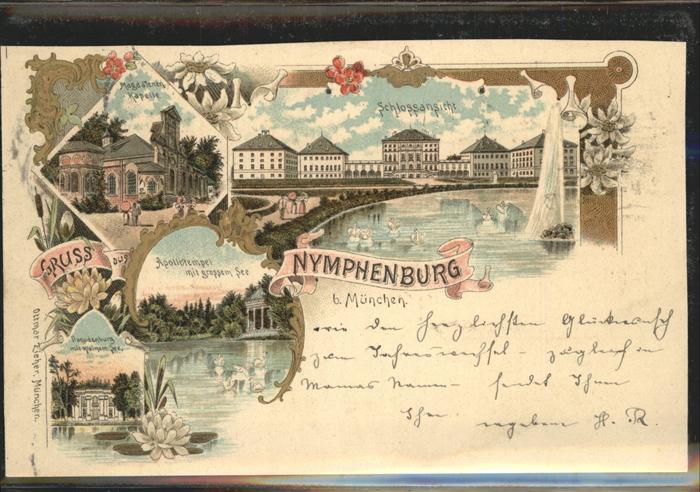 Magdalenen
Kapelle
Schlossansicht
GRUSS AUS
Apollotempel
mit grossem See
NYMPHENBURG
b. München.
Pagodenburg
mit kleinem See.
Ottmar Zieher, München.
wie den herzlichsten Glückwunsch
zum Jahreswechsel - zugleich in
Mamas Namen - sendet Ihnen
Ihr ergebener H. R.